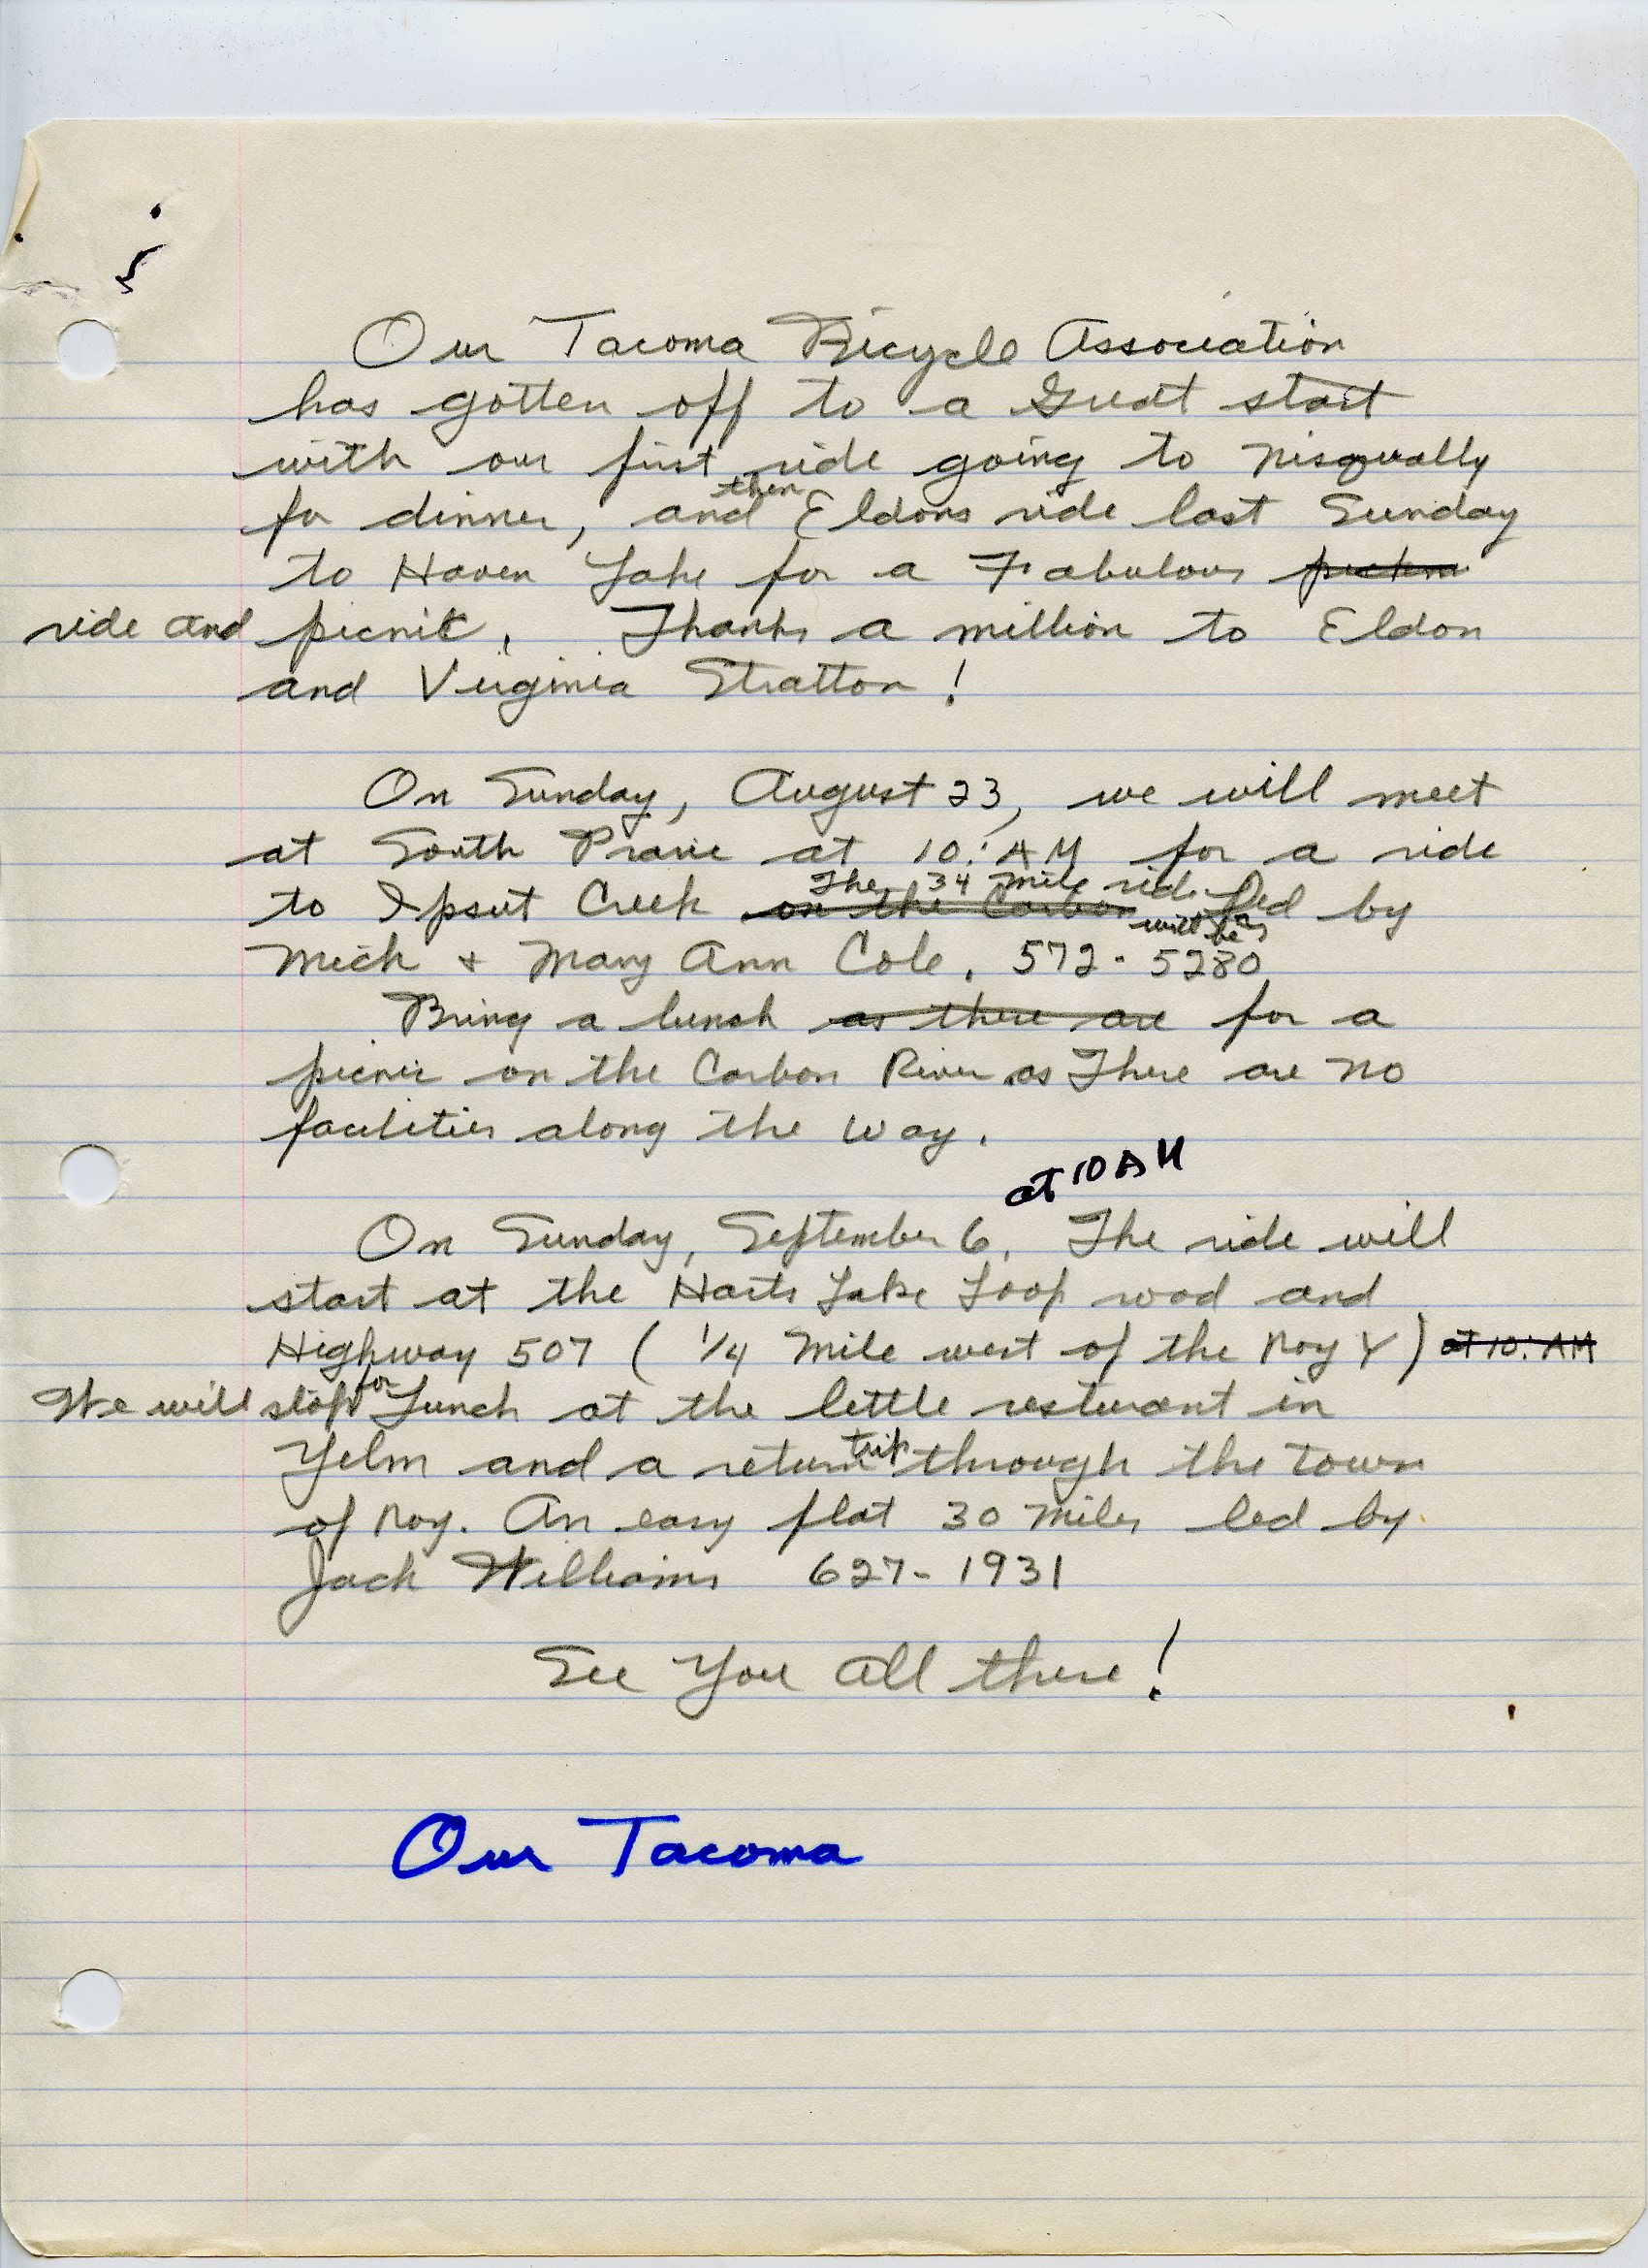 Our Tacoma Bicycle Association
has gotten off to a Great start
with our first ride going to Nisqually
then
for dinner, and Eldons ride last Sunday
to Haven Lake for a Fabulous
ride and picnic. Thanks a million to Eldon
and Virginia Stratton!
On Sunday, August 23, we will meet
at South Prarie at 10: AM for a ride
The 34 mile ride
to Ipsut Creek on the Carbon led by
will be
Mich & Mary Ann Cole. 572-5280
Bring a lunch as there are for a
picnic on the Carbon River as There are no
facilities along the way.
at 10 AM
On Sunday, September 6, The ride will
start at the Harts Lake Loop road and
Highway 507 (1/4 mile west of the Roy Y) at 10: AM
for
We will stop Lunch at the little resturant in
trip
Yelm and a return through the town
of Roy. An easy flat 30 miles led by
Jack Williams 627-1931
See You all there!
Our Tacoma